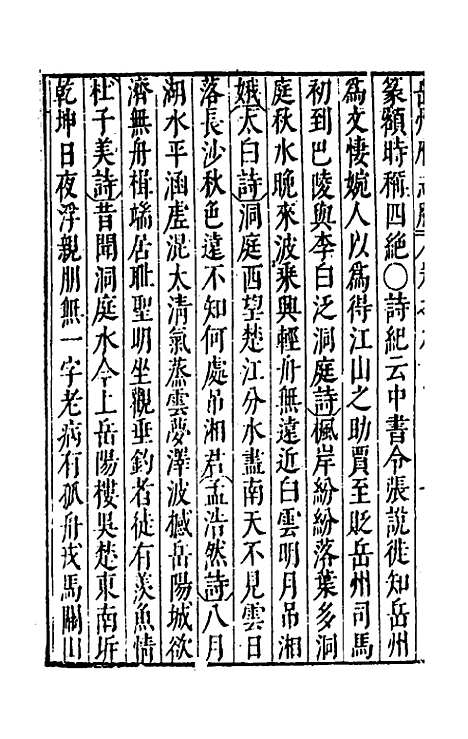 篆額時稱四絶○詩紀云中書令張說徙知岳州
為文悽婉人以為得江山之助賈至貶岳州司馬
初到巴陵與李白泛洞庭詩楓岸紛紛落葉多洞
庭秋水晚來波乘興輕舟無遠近白雲明月吊湘
娥太白詩洞庭西望楚江分水盡南天不見雲日
落長沙秋色遠不知何處吊湘君孟浩然詩八月
湖水平涵虛混太清氣蒸雲夢澤波撼岳陽城欲
濟無舟楫端居耻聖明坐觀垂釣者徒有羨魚情
杜子美詩昔聞洞庭水今上岳陽樓吳楚東南坼
乾坤日夜浮親朋無一字老病有孤舟戎馬關山